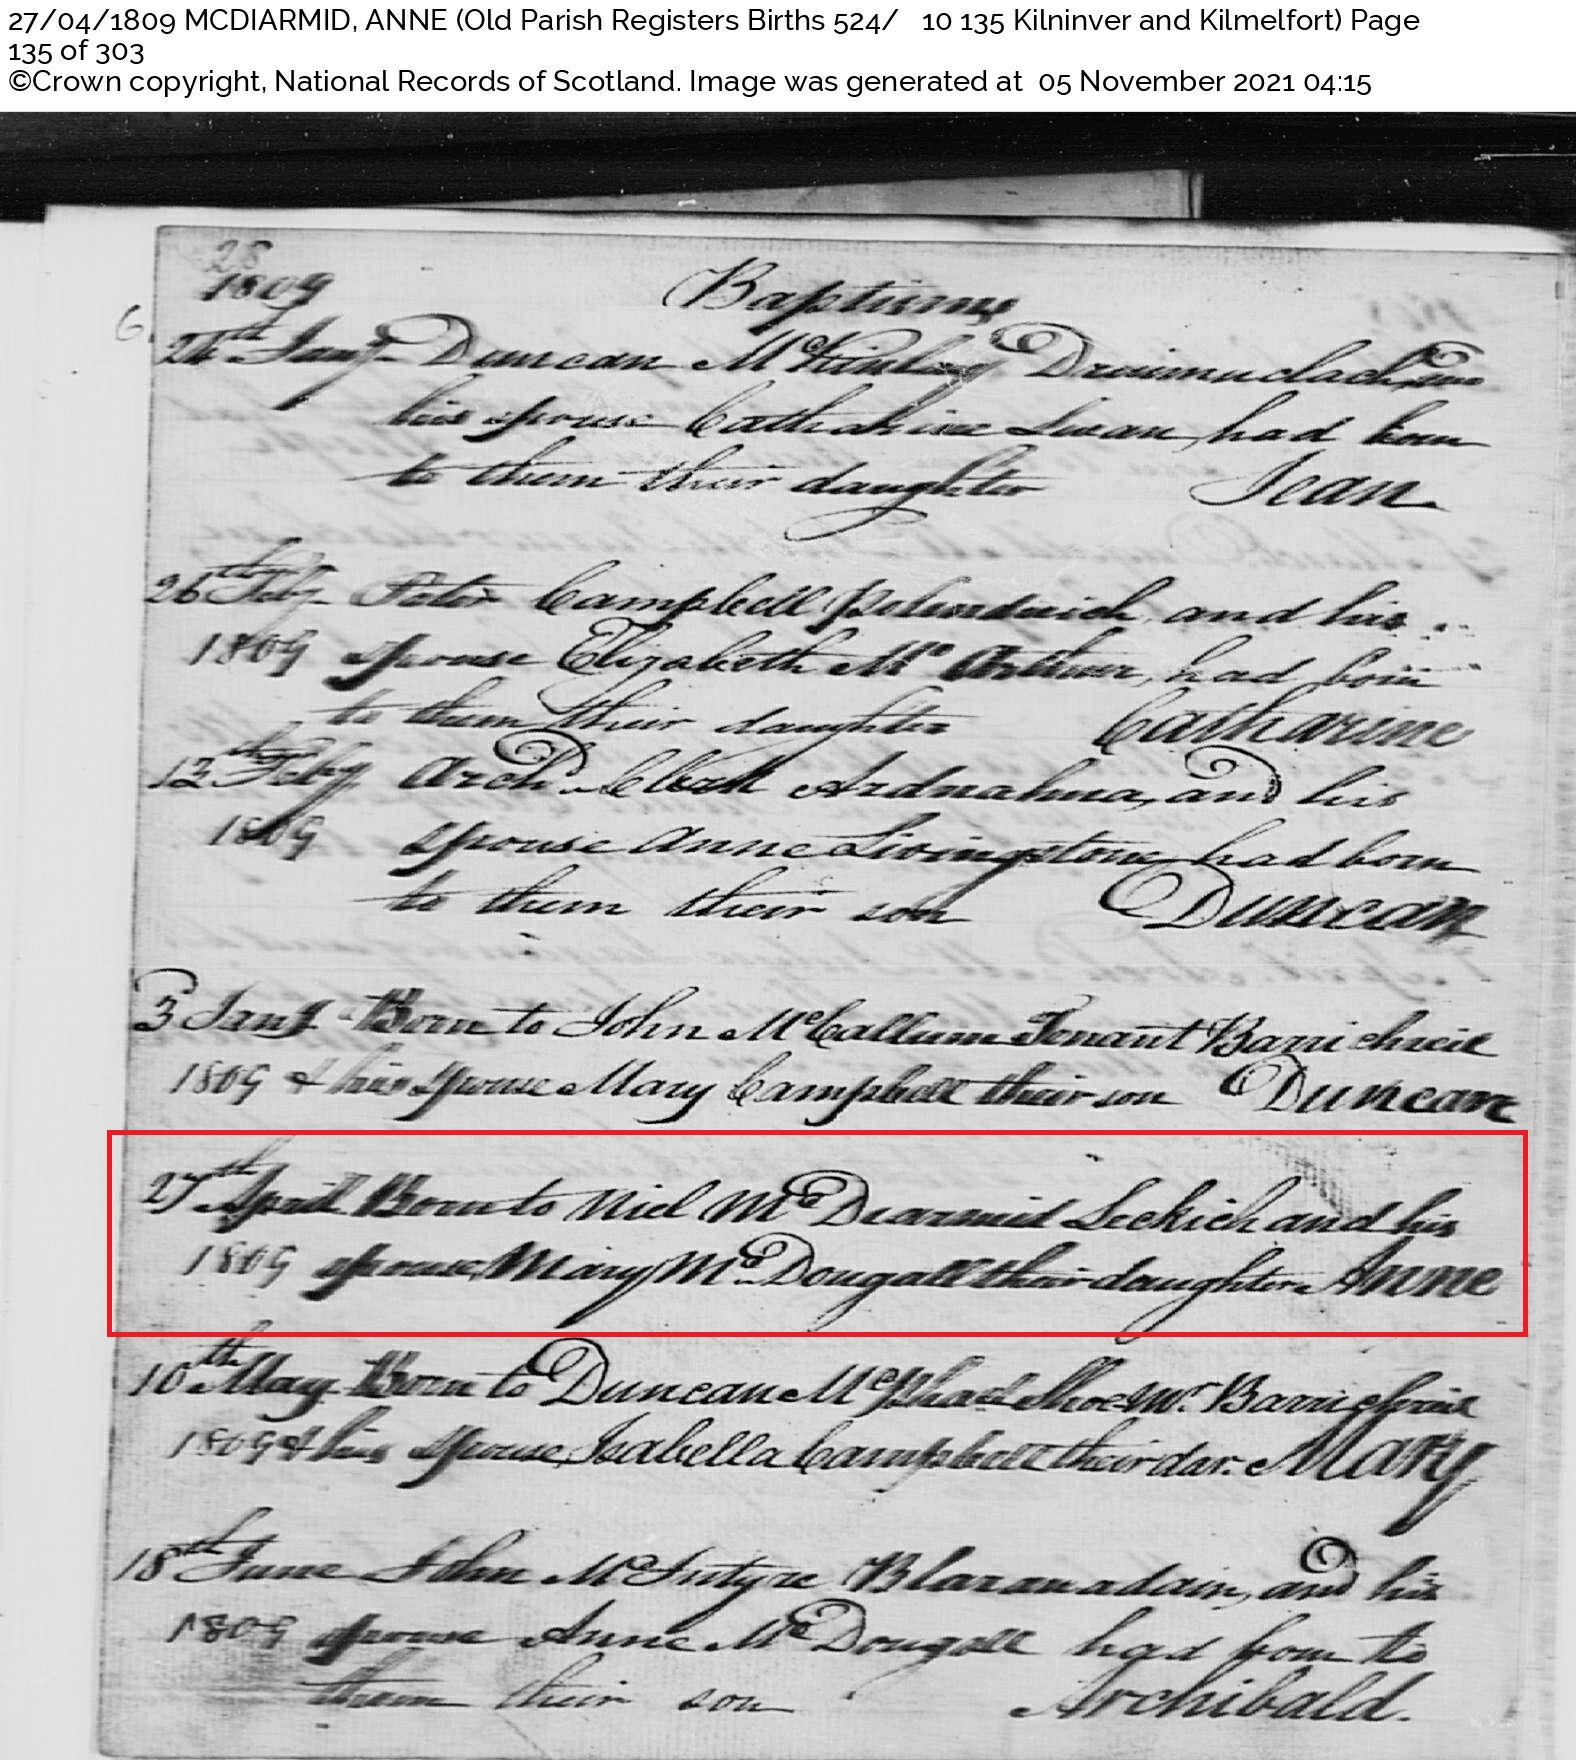 27/04/1809 MCDIARMID, ANNE (Old Parish Registers Births 524/ 10 135 Kilninver and Kilmelfort) Page
135 of 303
©Crown copyright, National Records of Scotland. Image was generated at 05 November 2021 04:15
28
1809
Baptisms
6.
24th Jany Duncan McKinlay Drimnudach, and
his spouse Catharine Swan, had born
to them their daughter Jean
26th Feby Peter Campbell and his
1809 spouse Elizabeth Mc Arthur, had born
to them their daughter Catharine
12th Feby Archd. Clark Ardnahua, and his
1809 spouse Anne Livingstone had born
to them their son Duncan
3 Jany Born to John McCallum Tenant Barrichreil
1809 & his spouse Mary Campbell their son Duncan
27th April Born to Niel Mc Dearmid Leckich and his
1809 spouse, Mary Mc Dougall their daughter Anne
10th May Born to Duncan McPhael Shoe-Mr. Barrichreil
1809 & his spouse, Isabella Campbell their dar. Mary
18th June John McIntyre Blaranadain, and his
1809 spouse Anne McDougall had born to
them their son Archibald.